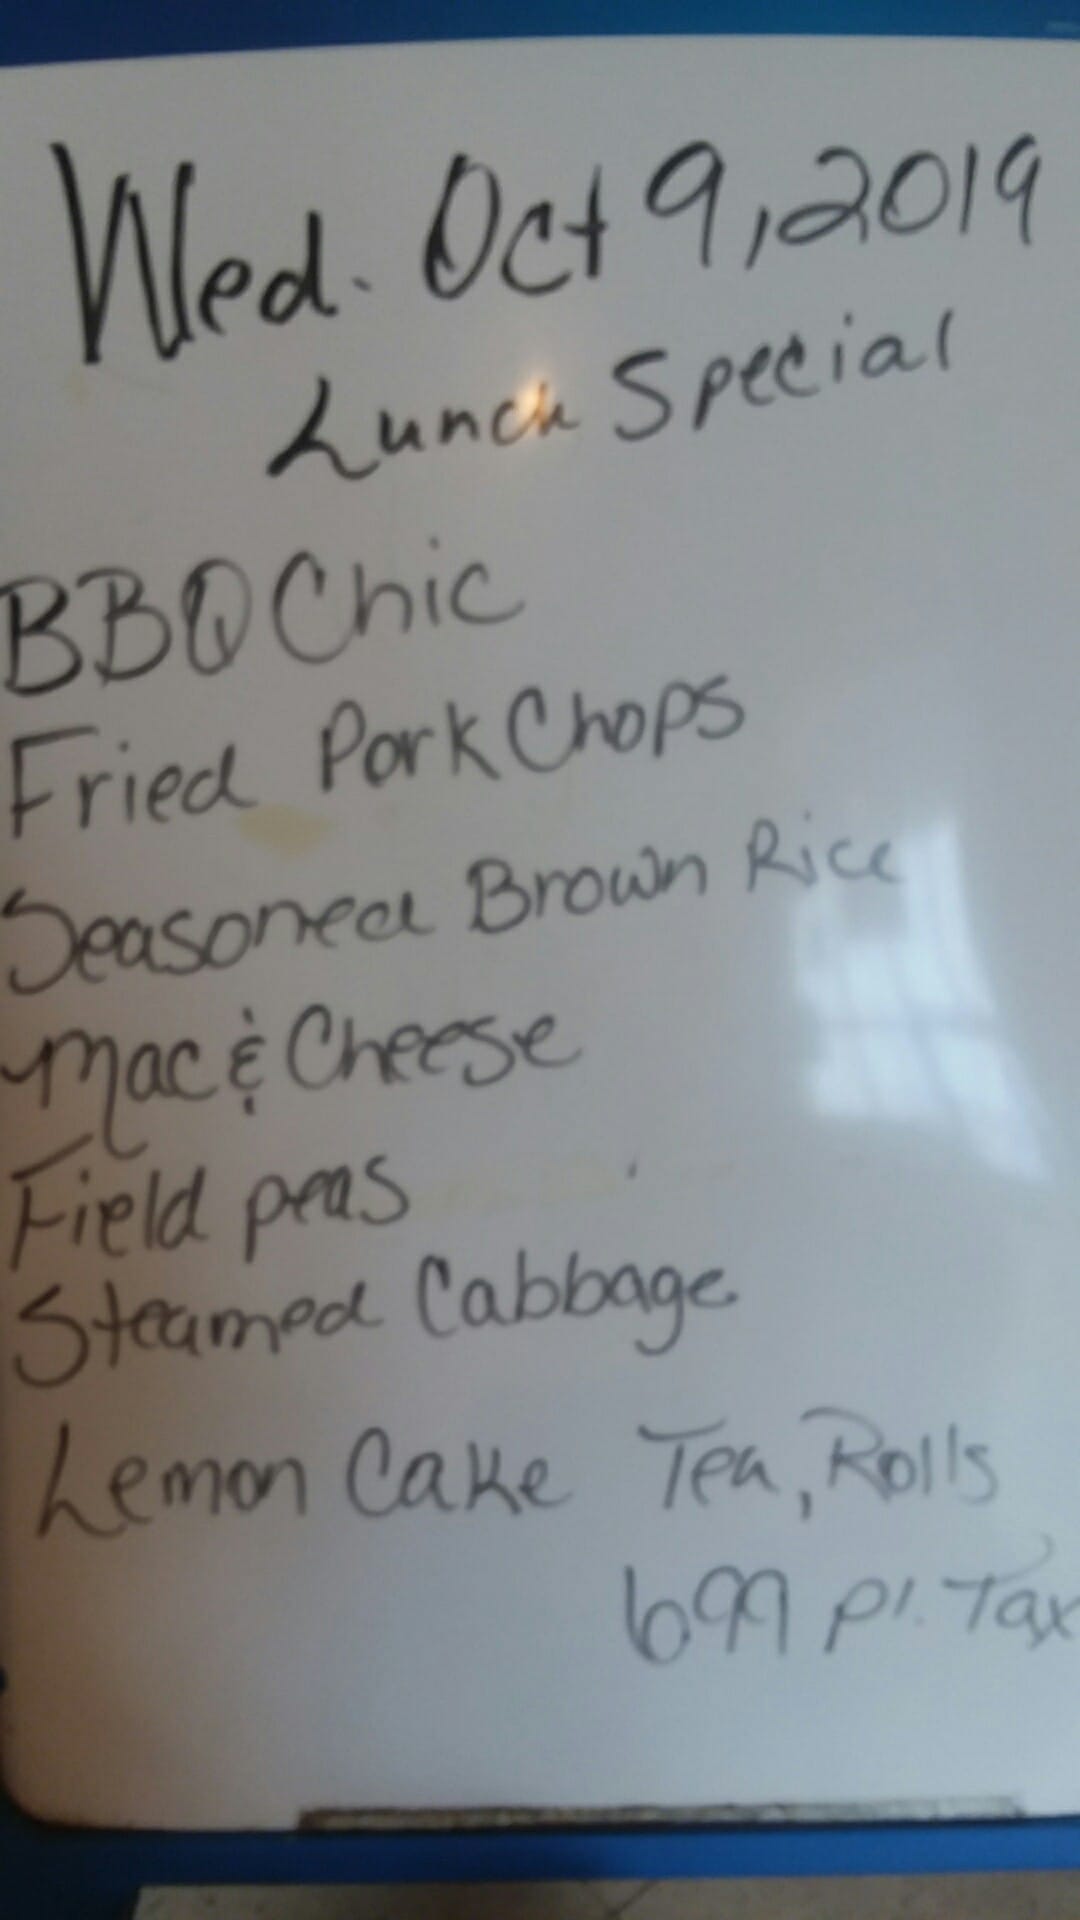 Wed. Oct 9, 2019
Lunch Special
BBQ Chic
Fried Pork Chops
Seasoned Brown Rice
Mac & Cheese
Field peas
Steamed Cabbage
Lemon Cake Tea, Rolls
699 pl. Tax